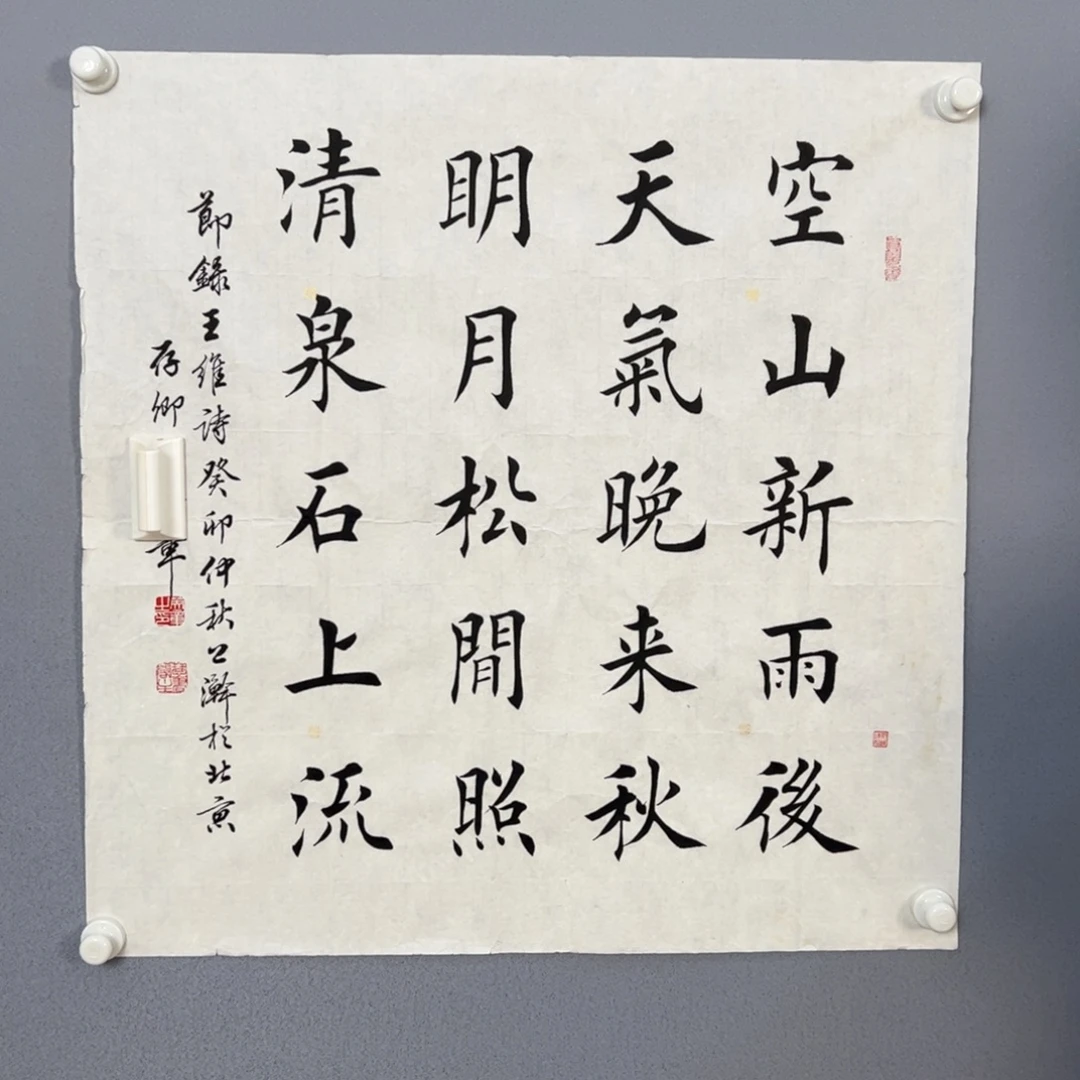 空山新雨後
天氣晚来秋
明月松間照
清泉石上流
節錄王維詩癸卯仲秋公瀚於北京
存卿